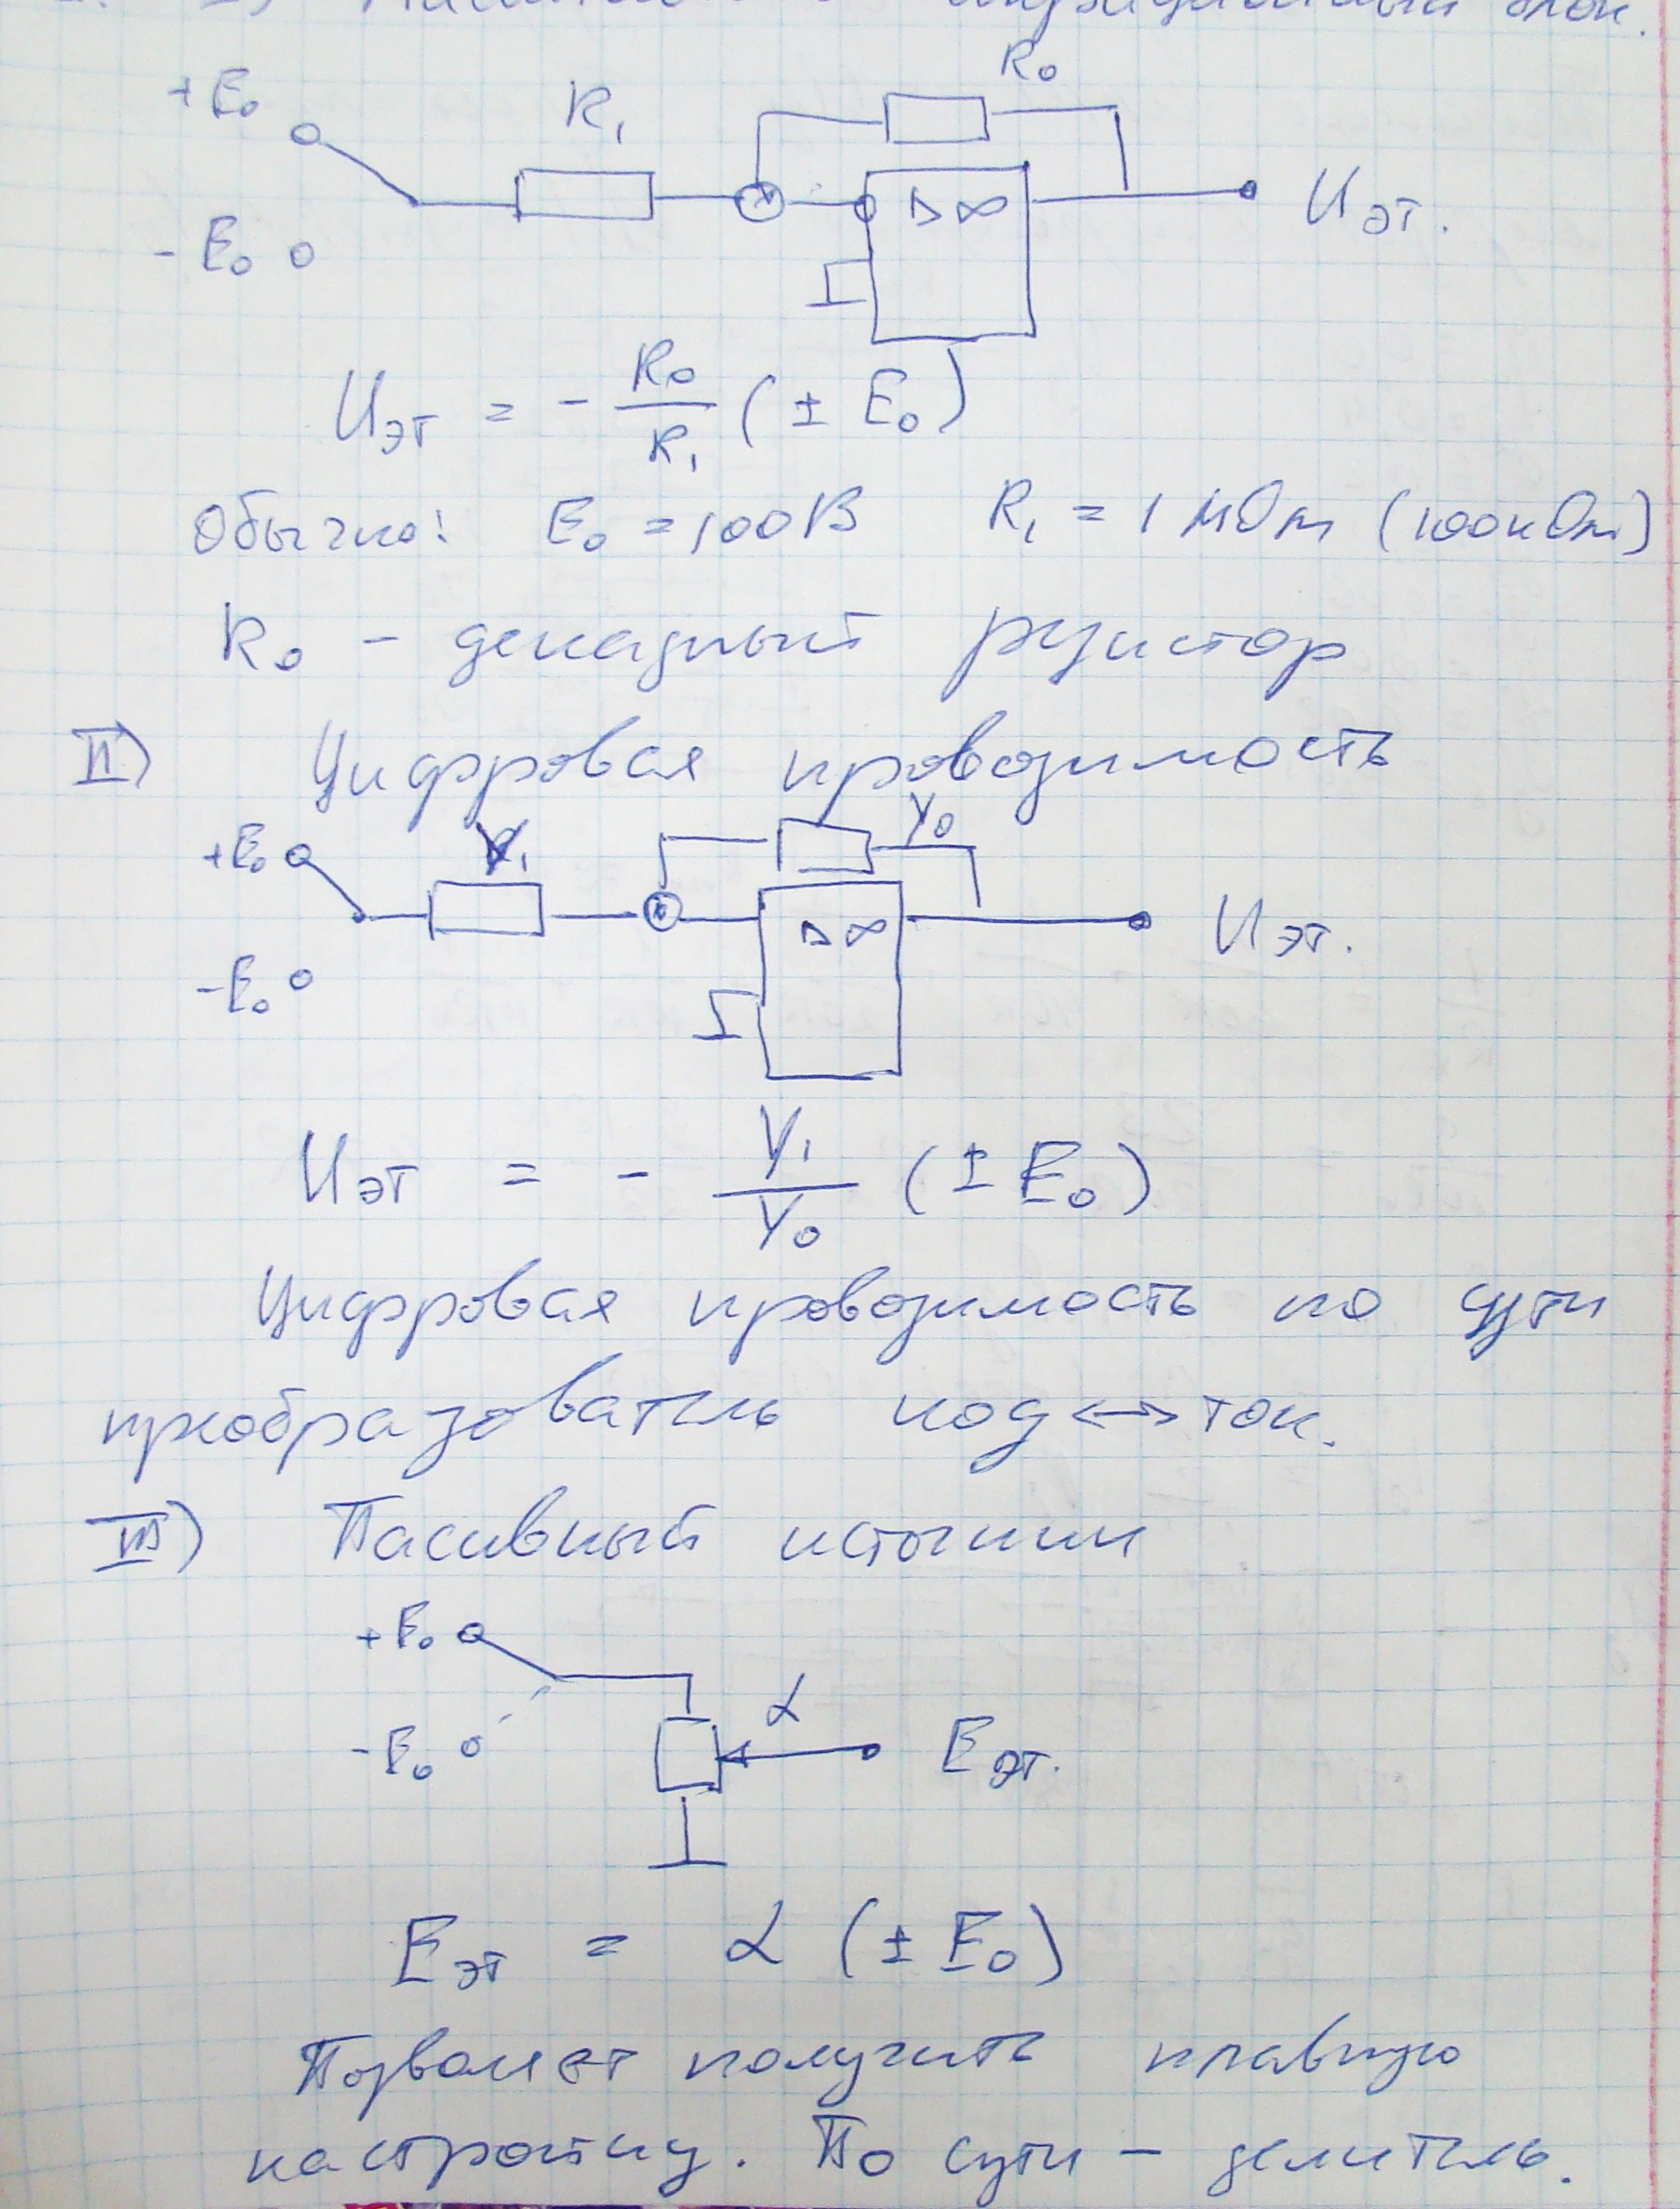 блок.
R₀
+E₀
R₁
▷∞
Uэт.
- E₀
Uэт = - R₀/R₁ (± E₀)
Обычно: E₀ = 100В R₁ = 1 МОм (100кОм)
R₀ - декадный резистор
II) Цифровая проводимость
Y₀
+E₀
Y₁
▷∞
Uэт.
-E₀
Uэт = - Y₁/Y₀ (± E₀)
Цифровая проводимость по сути
преобразователь код ↔ ток.
III) Пасивный источник
+E₀
α
-E₀
Eэт.
Eэт = α (± E₀)
Позволяет получить плавную
настройку. По сути – делитель.